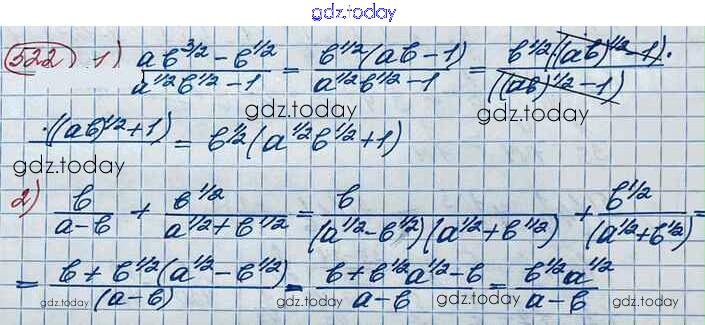 gdz.today
522) 1) (ab^{3/2} - b^{1/2})/(a^{1/2}b^{1/2} - 1) = (b^{1/2}(ab - 1))/(a^{1/2}b^{1/2} - 1) = (b^{1/2}((ab)^{1/2} - 1)·)/(((ab)^{1/2} - 1))
·((ab)^{1/2} + 1) = b^{1/2}(a^{1/2}b^{1/2} + 1)
gdz.today
gdz.today
gdz.today
2) b/(a - b) + b^{1/2}/(a^{1/2} + b^{1/2}) = b/((a^{1/2} - b^{1/2})(a^{1/2} + b^{1/2})) + b^{1/2}/((a^{1/2} + b^{1/2})) =
= (b + b^{1/2}(a^{1/2} - b^{1/2}))/((a - b)) = (b + b^{1/2}a^{1/2} - b)/(a - b) = (b^{1/2}a^{1/2})/(a - b)
gdz.today
gdz.today
gdz.today